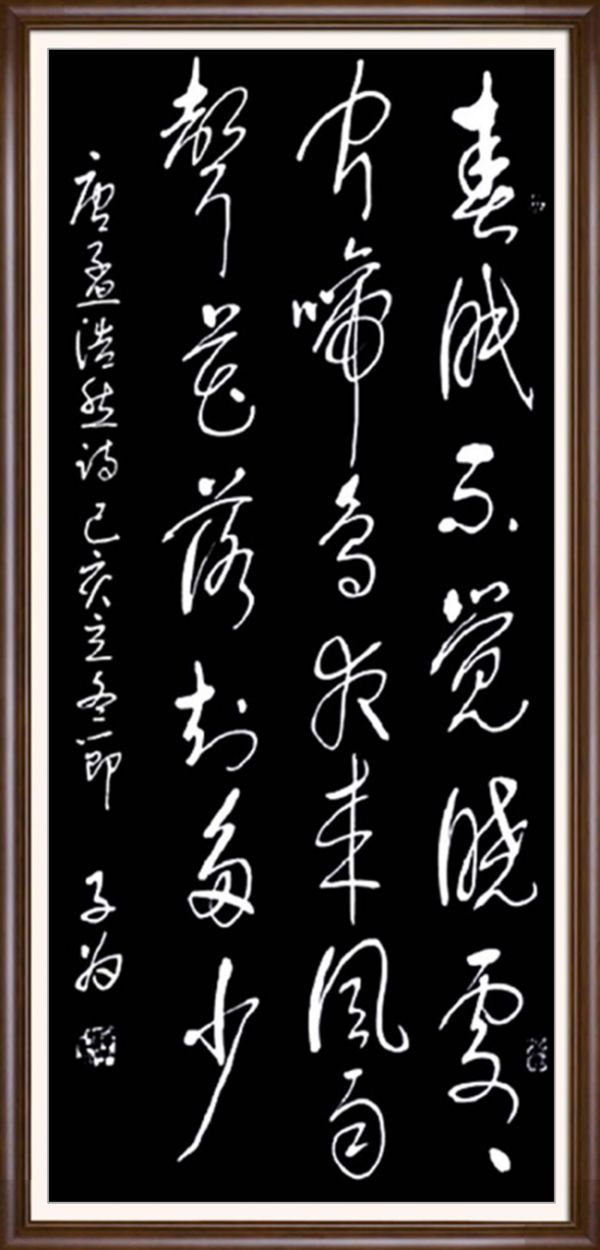 春眠不覺曉處、
聞啼鳥夜來風雨
聲花落知多少
唐孟浩然詩 己亥立冬節 子为